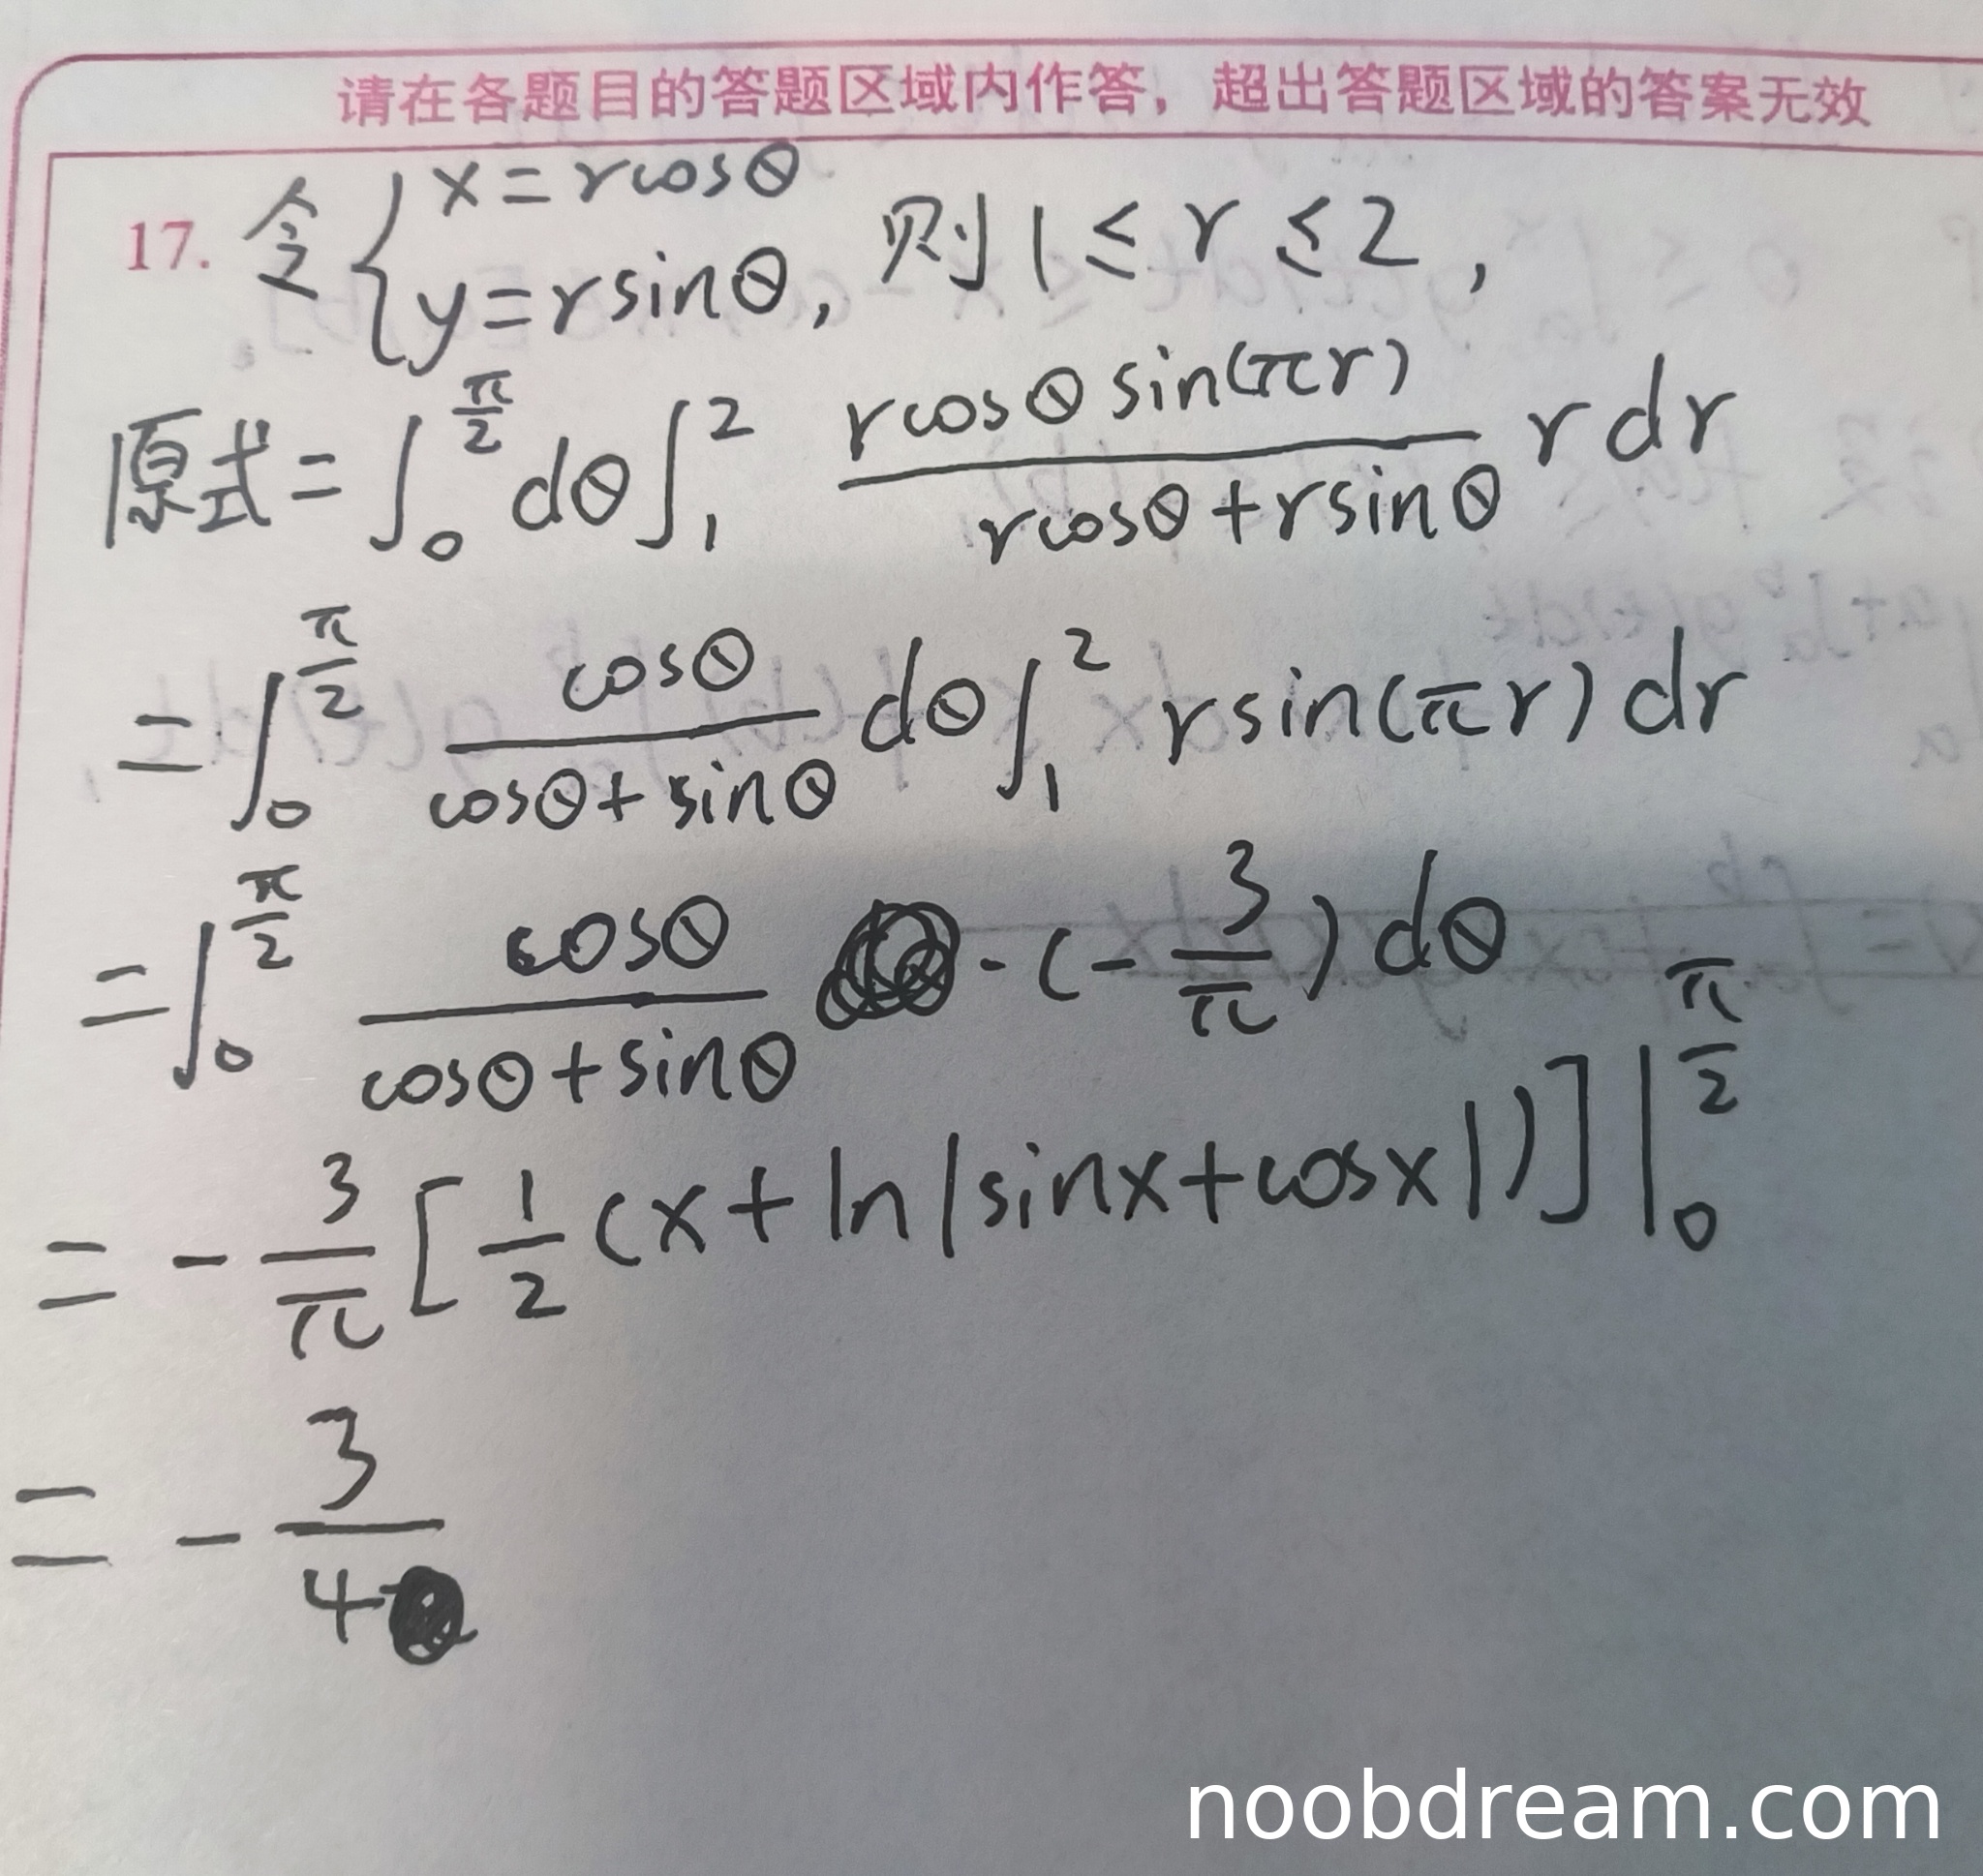 请在各题目的答题区域内作答，超出答题区域的答案无效
17. 令 { x = rcosθ, y = rsinθ, 则 1 ≤ r ≤ 2,
原式 = ∫_0^{π/2} dθ ∫_1^2 \frac{rcosθ sin(πr)}{rcosθ + rsinθ} r dr
= ∫_0^{π/2} \frac{cosθ}{cosθ + sinθ} dθ ∫_1^2 rsin(πr) dr
= ∫_0^{π/2} \frac{cosθ}{cosθ + sinθ} · (-\frac{3}{π}) dθ
= -\frac{3}{π} [\frac{1}{2} (x + ln|sinx + cosx|)] |_0^{π/2}
= -\frac{3}{4}
noobdream.com